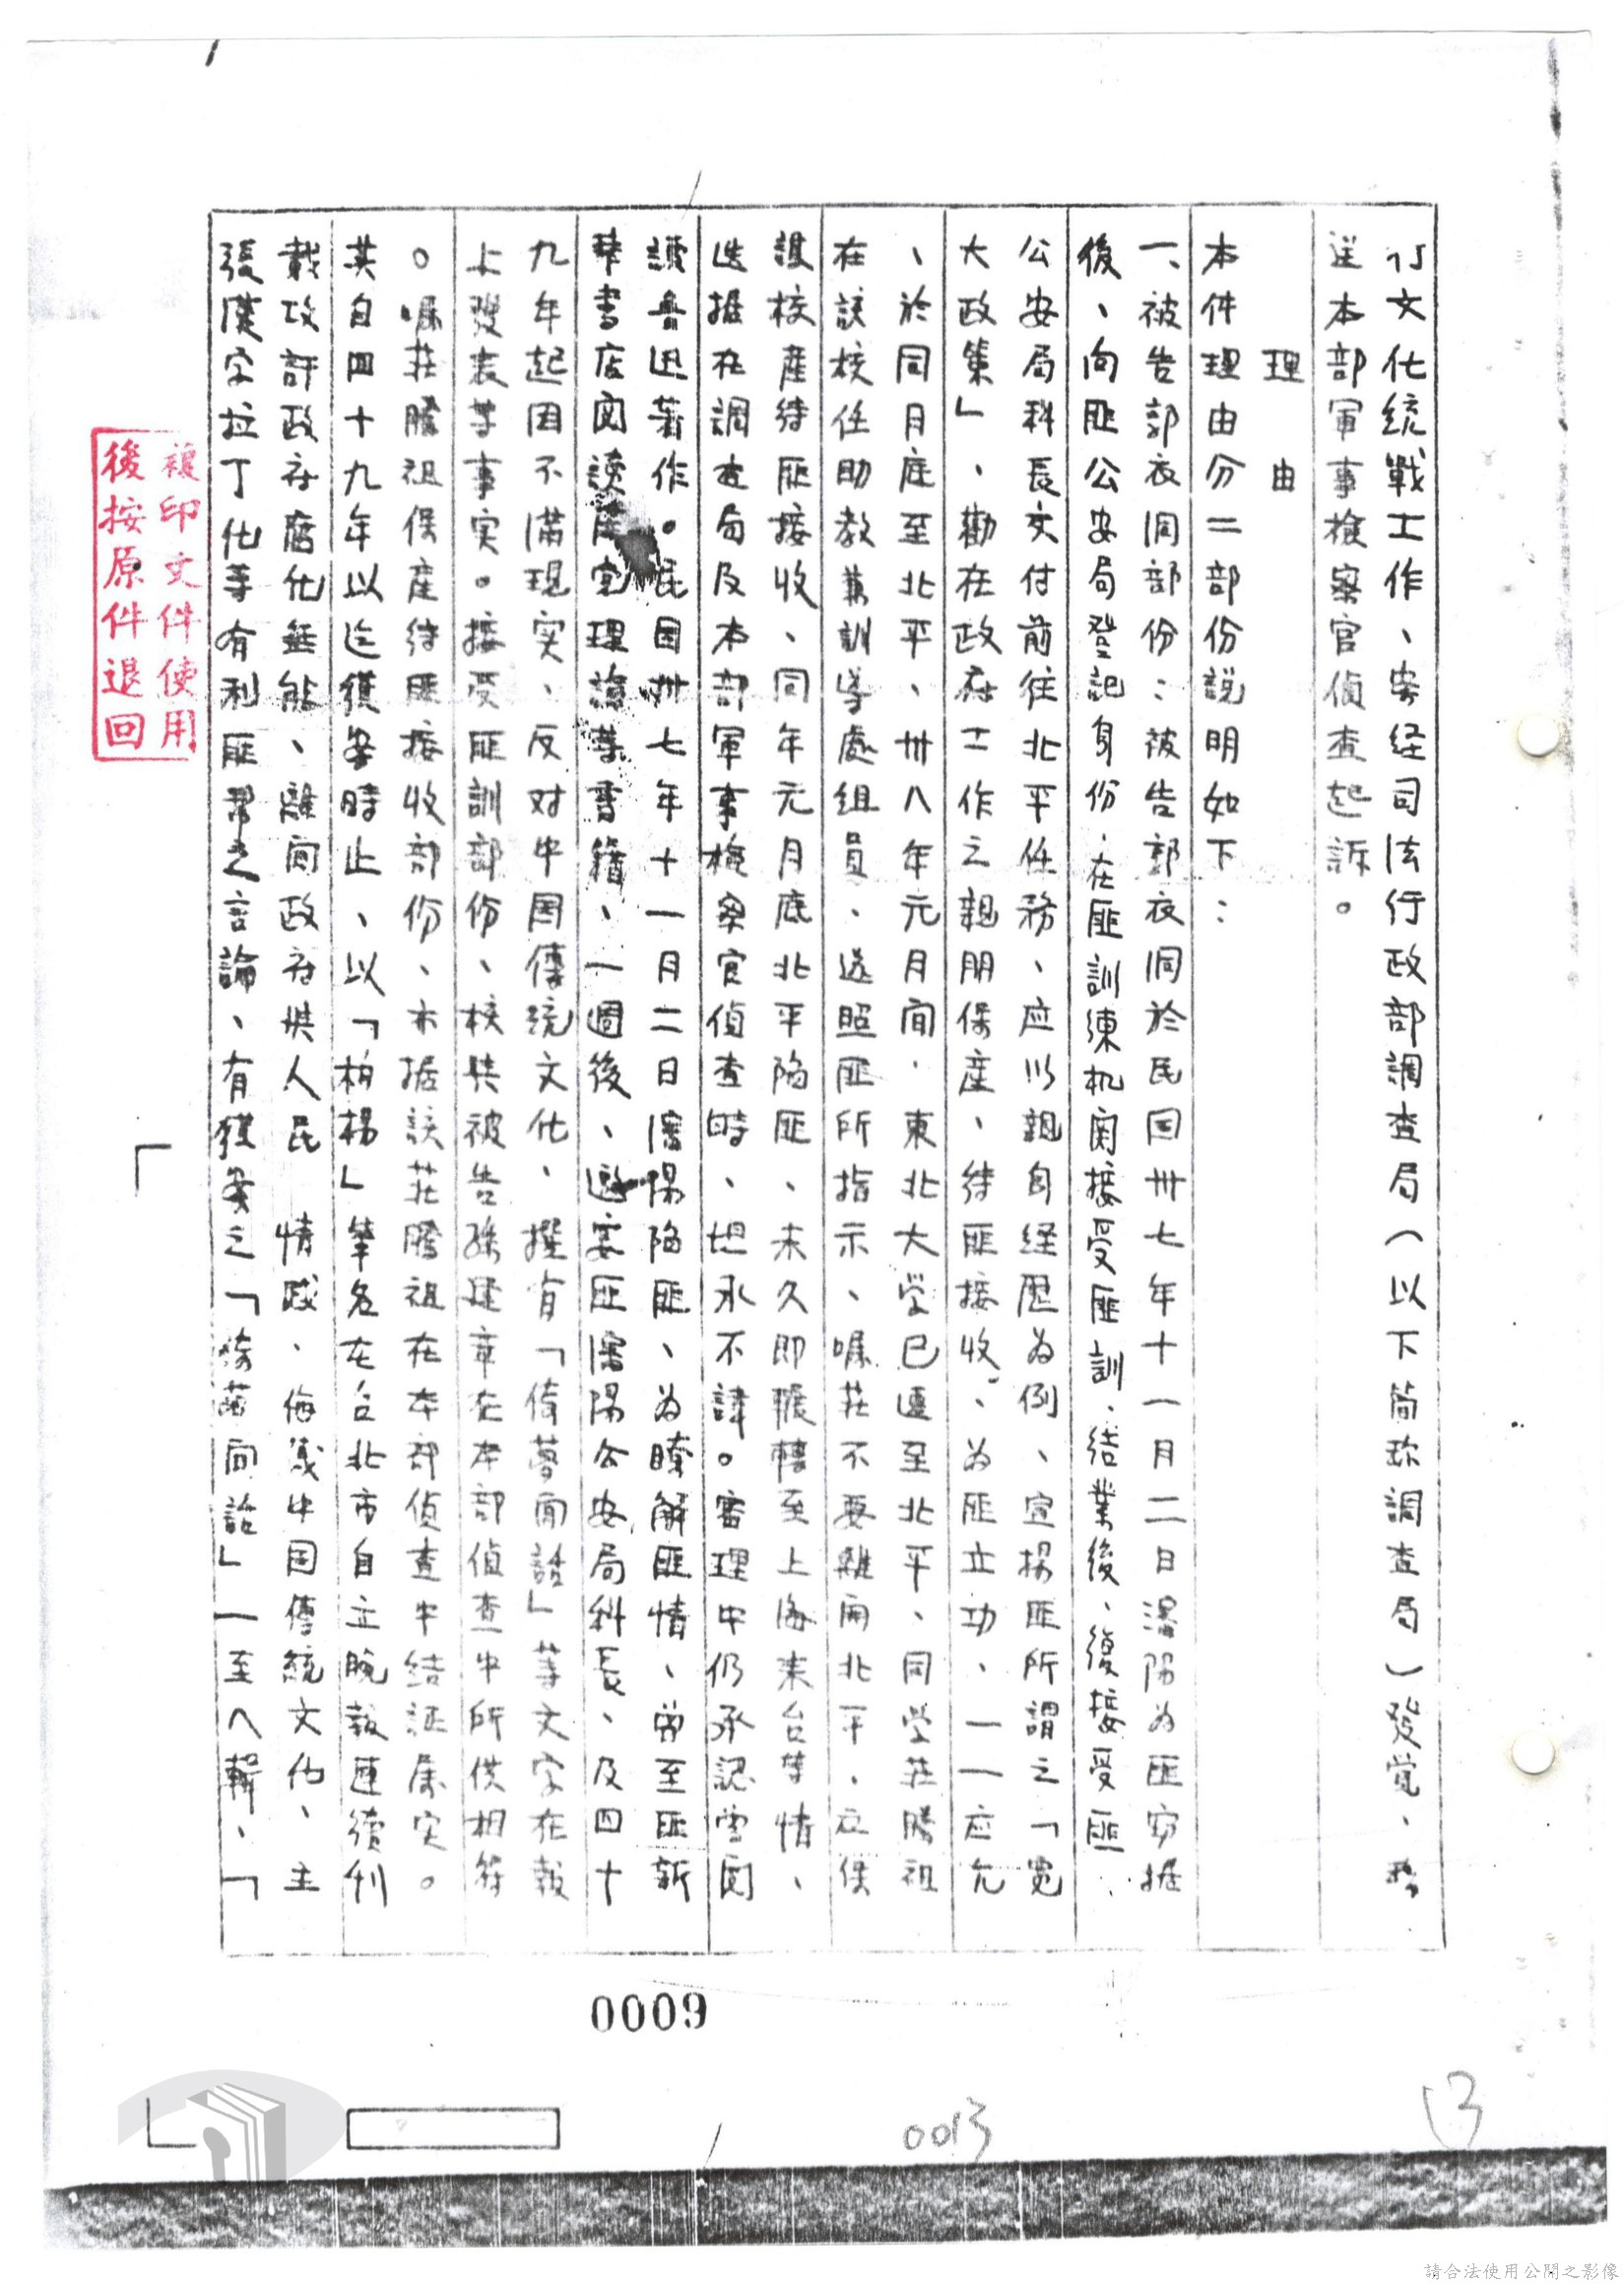 行文化統戰工作、案经司法行政部調查局(以下简称調查局)發觉、移
送本部軍事檢察官偵查起訴。
理由
本件理由分二部份說明如下:
一、被告郭衣洞部份:被告郭衣洞於民囯卅七年十一月二日瀋陽为匪窃据
後、向匪公安局登記身份、在匪訓練机関接受匪訓、结業後、復接受匪
公安局科長交付前往北平任務、应以親自经歷为例、宣揚匪所謂之「宽
大政策」、勸在政府工作之親朋保產、待匪接收、为匪立功、——应允
、於同月底至北平、卅八年元月间、東北大学已遷至北平、同学莊腾祖
在該校任助教兼訓导處组員、遂照匪所指示、嘱莊不要離开北平、应保
護校產待匪接收、同年元月底北平陷匪、未久即輾轉至上海来台等情、
迭据在調查局及本部軍事檢察官偵查時、坦承不諱。審理中仍承認曾閱
讀魯迅著作。民囯卅七年十一月二日瀋陽陷匪、为瞭解匪情、曾至匪新
華書店閱读匪党理論等書籍、一週後、邂逅匪瀋陽公安局科長、及四十
九年起因不满現实、反对中囯傳统文化、撰有「倚夢闲話」等文字在報
上發表等事实。接受匪訓部份、核與被告孫建章在本部偵查中所供相符
。嘱莊腾祖保產待匪接收部份、亦据該莊腾祖在本部偵查中结証屬实。
其自四十九年以迄獲案時止、以「柏楊」筆名在台北市自立晚報連續刊
載攻訐政府腐化無能、離间政府與人民 情感、侮蔑中囯傳統文化、主
張漢字拉丁化等有利匪幫之言論、有獲案之「倚夢闲話」一至八輯、「
複印文件使用
後按原件退回
0009
0013
13
請合法使用公開之影像